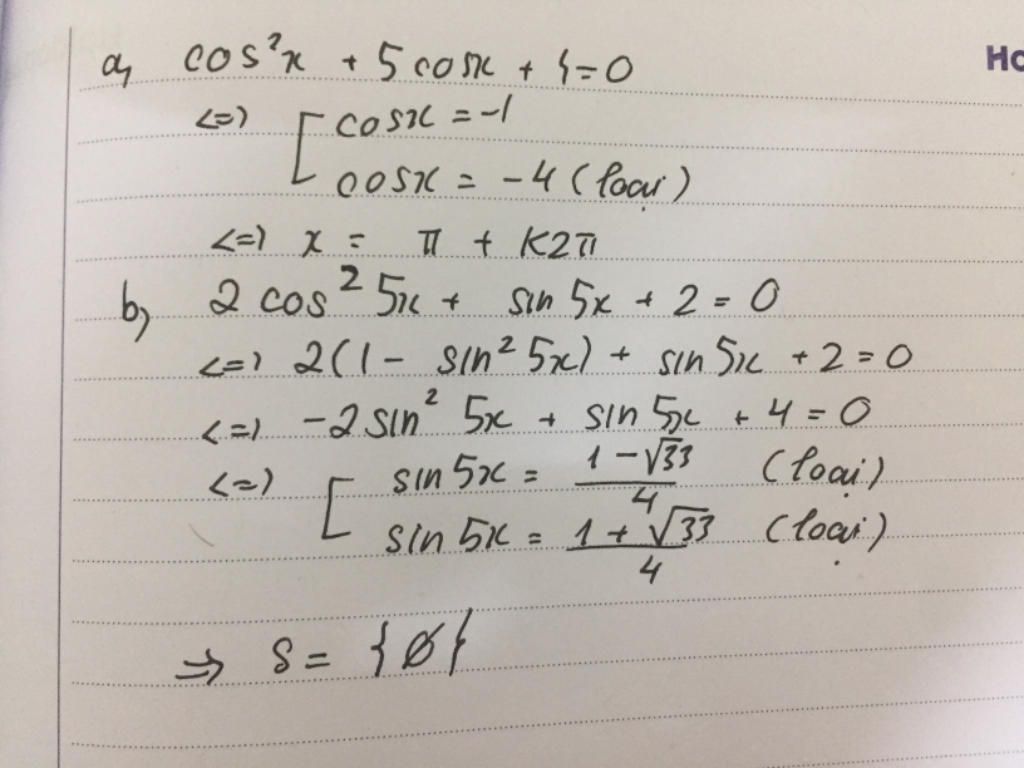 a, cos²x + 5 cosx + 4 = 0
<=> [ cosx = -1
cosx = -4 (loại)
<=> x = π + K2π
b, 2 cos² 5x + sin 5x + 2 = 0
<=> 2(1 - sin² 5x) + sin 5x + 2 = 0
<=> -2 sin² 5x + sin 5x + 4 = 0
<=> [ sin 5x = (1 - √33)/4 (loại)
sin 5x = (1 + √33)/4 (loại)
=> S = {∅}